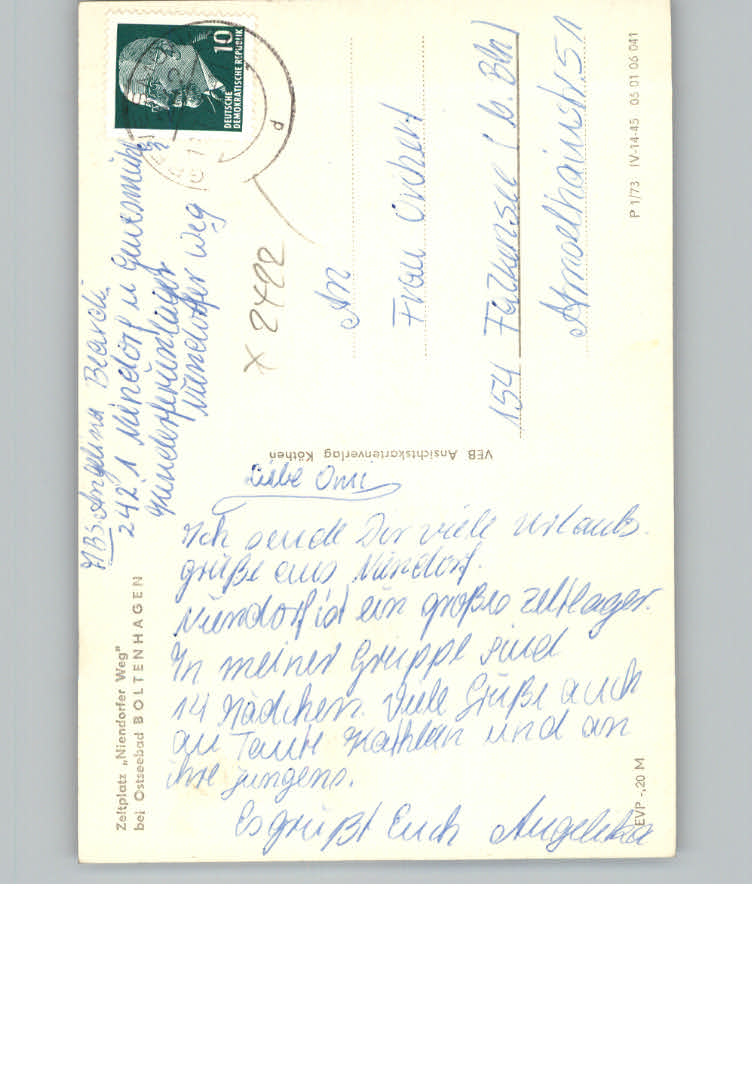 Zeltplatz „Niendorfer Weg"
bei Ostseebad BOLTENHAGEN
ABS. Angelina
242.1 Niendorf
Kinderferienlager
Niendorfer Weg
Liebe Omi
Ich sende Dir viele Urlaubs
grüße aus Niendorf.
Niendorf ist ein großes Zeltlager.
In meiner Gruppe sind
14 Mädchen. Viele Grüße auch
an Tante und an
ihre jungens.
Es grüßt Euch Angelika
VEB Ansichtskartenverlag Köthen
10
DEUTSCHE
DEMOKRATISCHE REPUBLIK
d
X 2422
An
Frau
154 Falkensee (b. Bln)
51
EVP -,20 M
P 1/73 IV-14-45 05 01 06 041